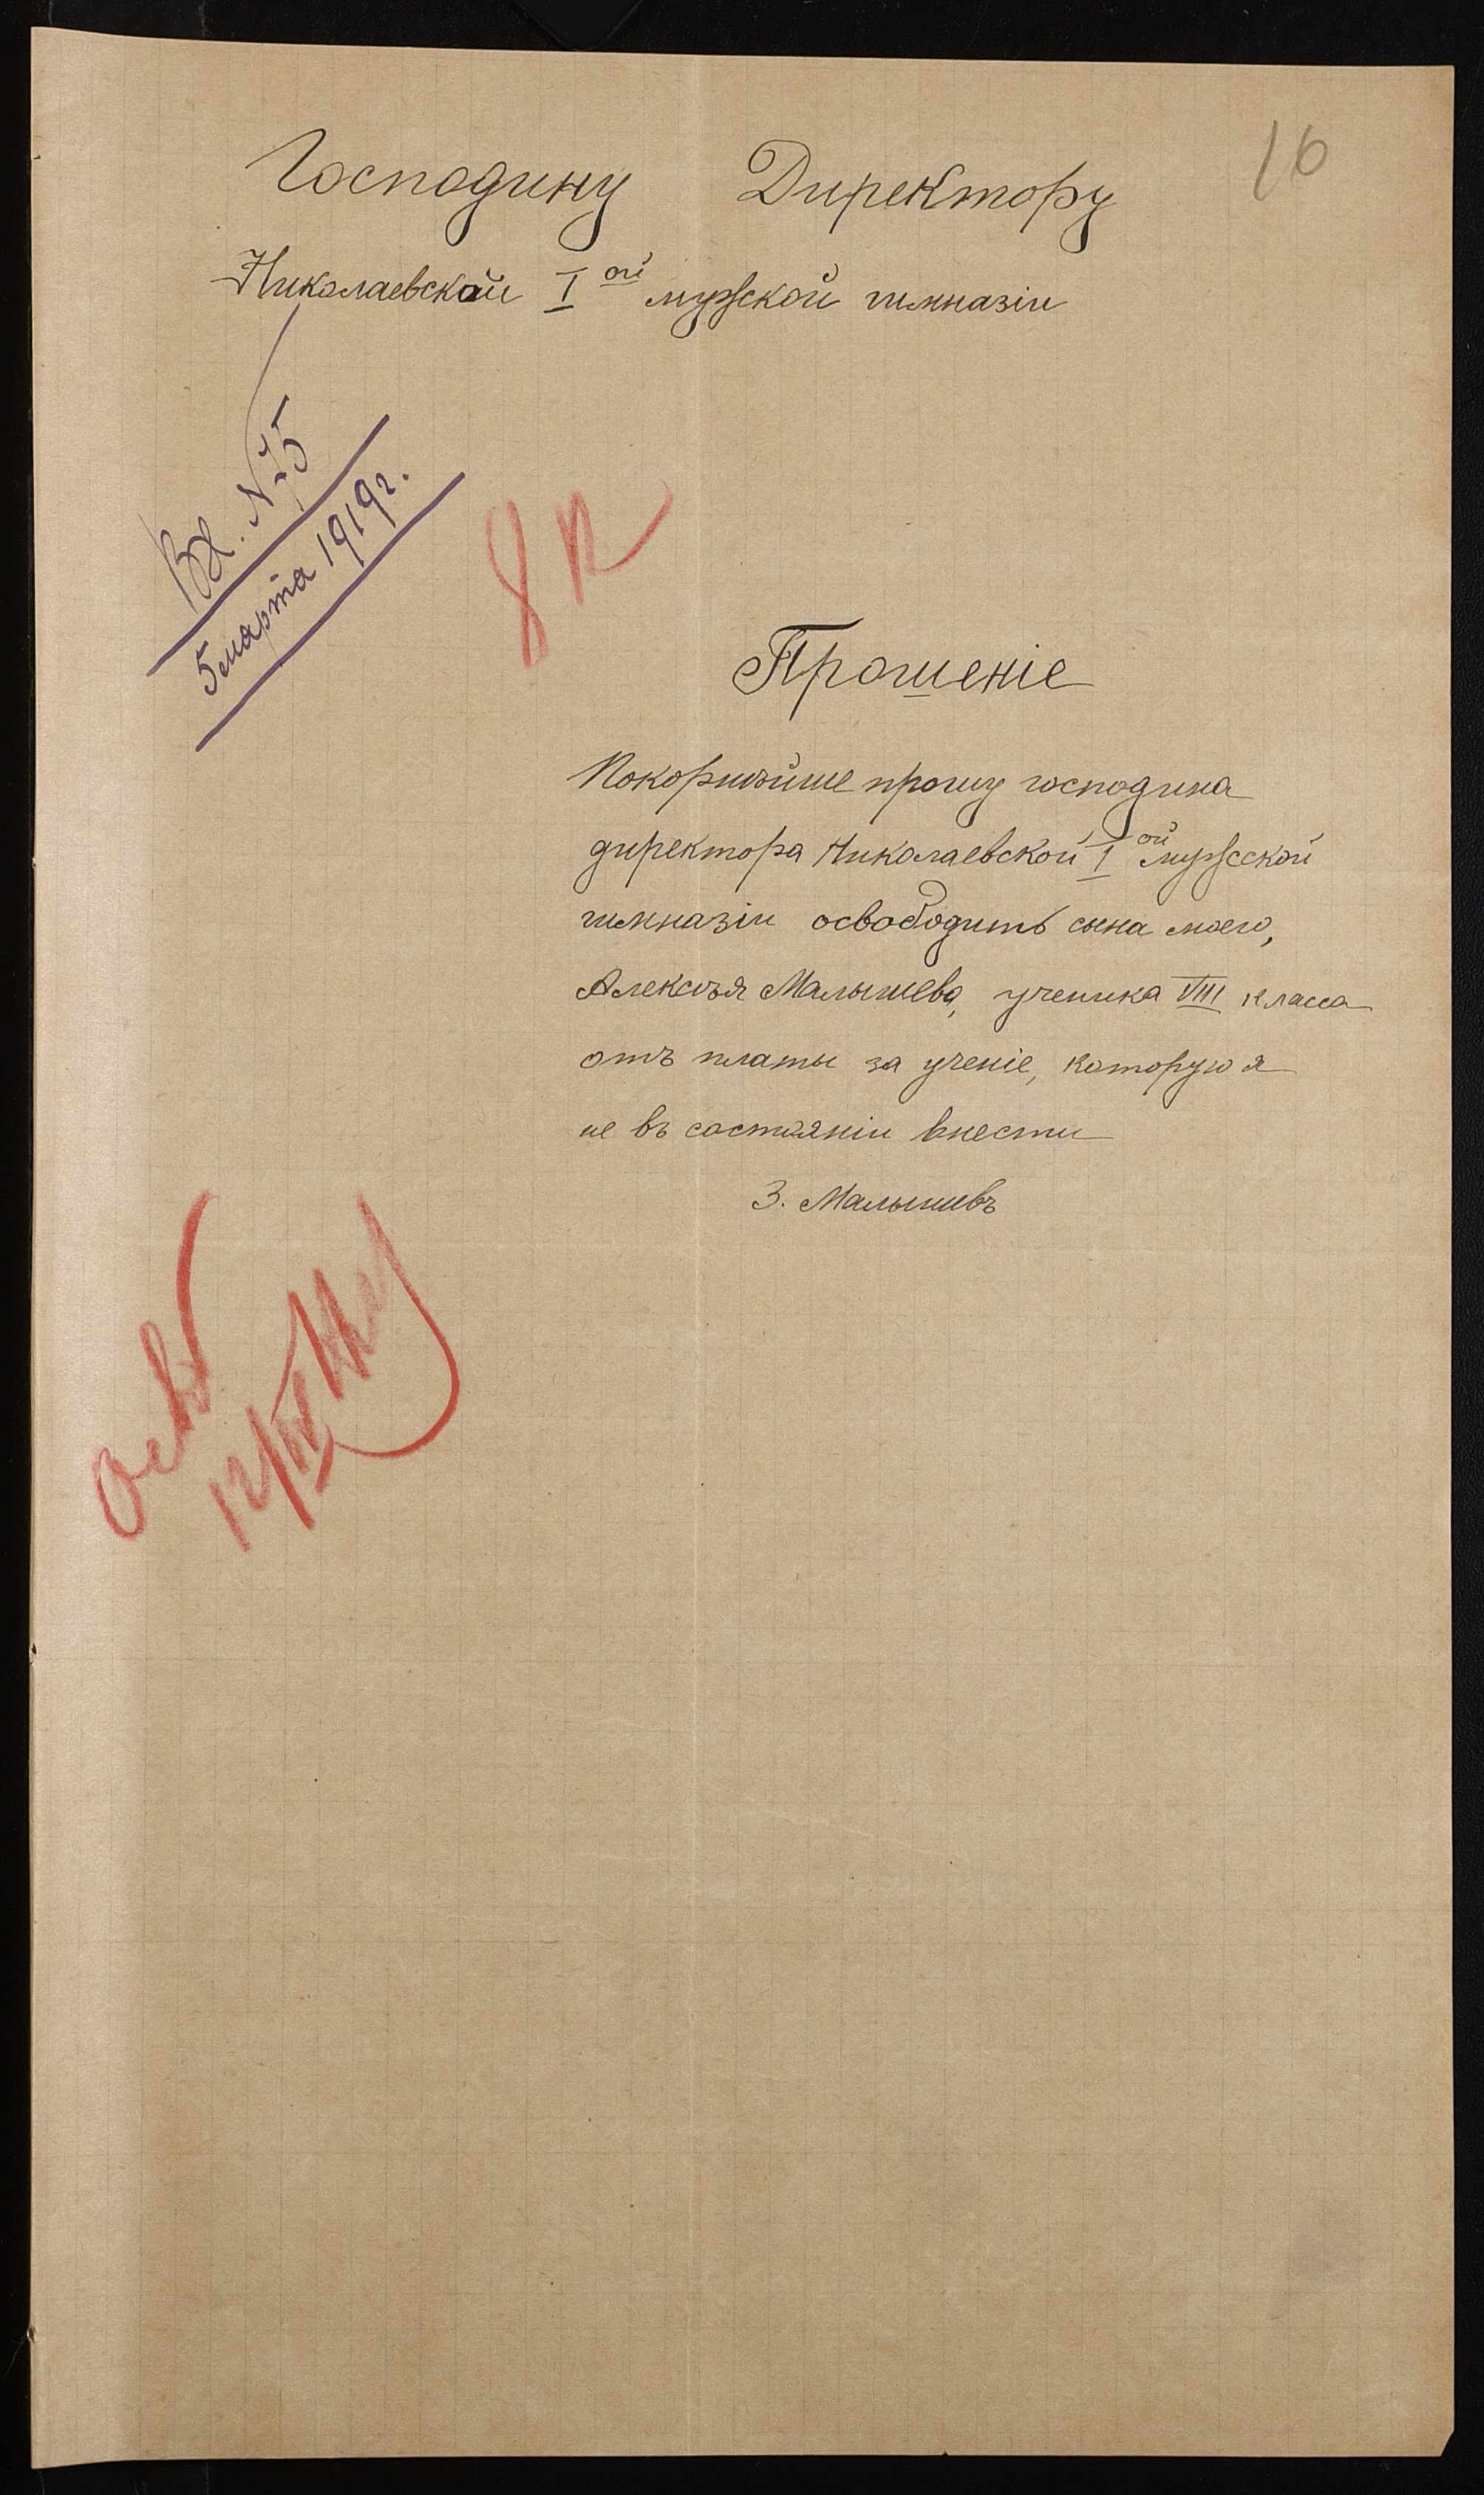 16
Господину Директору
Николаевской I ой мужской гимназіи
Вх. № 75
5 марта 1919 г.
8 к
Прошеніе
Покорнѣйше прошу господина
директора Николаевской I ой мужской
гимназіи освободить сына моего,
Алексѣя Малышева, ученика VIII класса
отъ платы за ученіе, которую я
не въ состояніи внести
З. Малышевъ
Осв